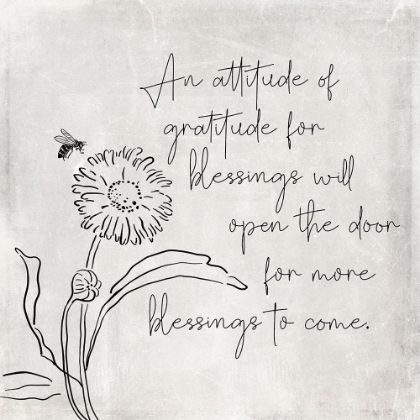 An attitude of
gratitude for
blessings will
open the door
for more
blessings to come.